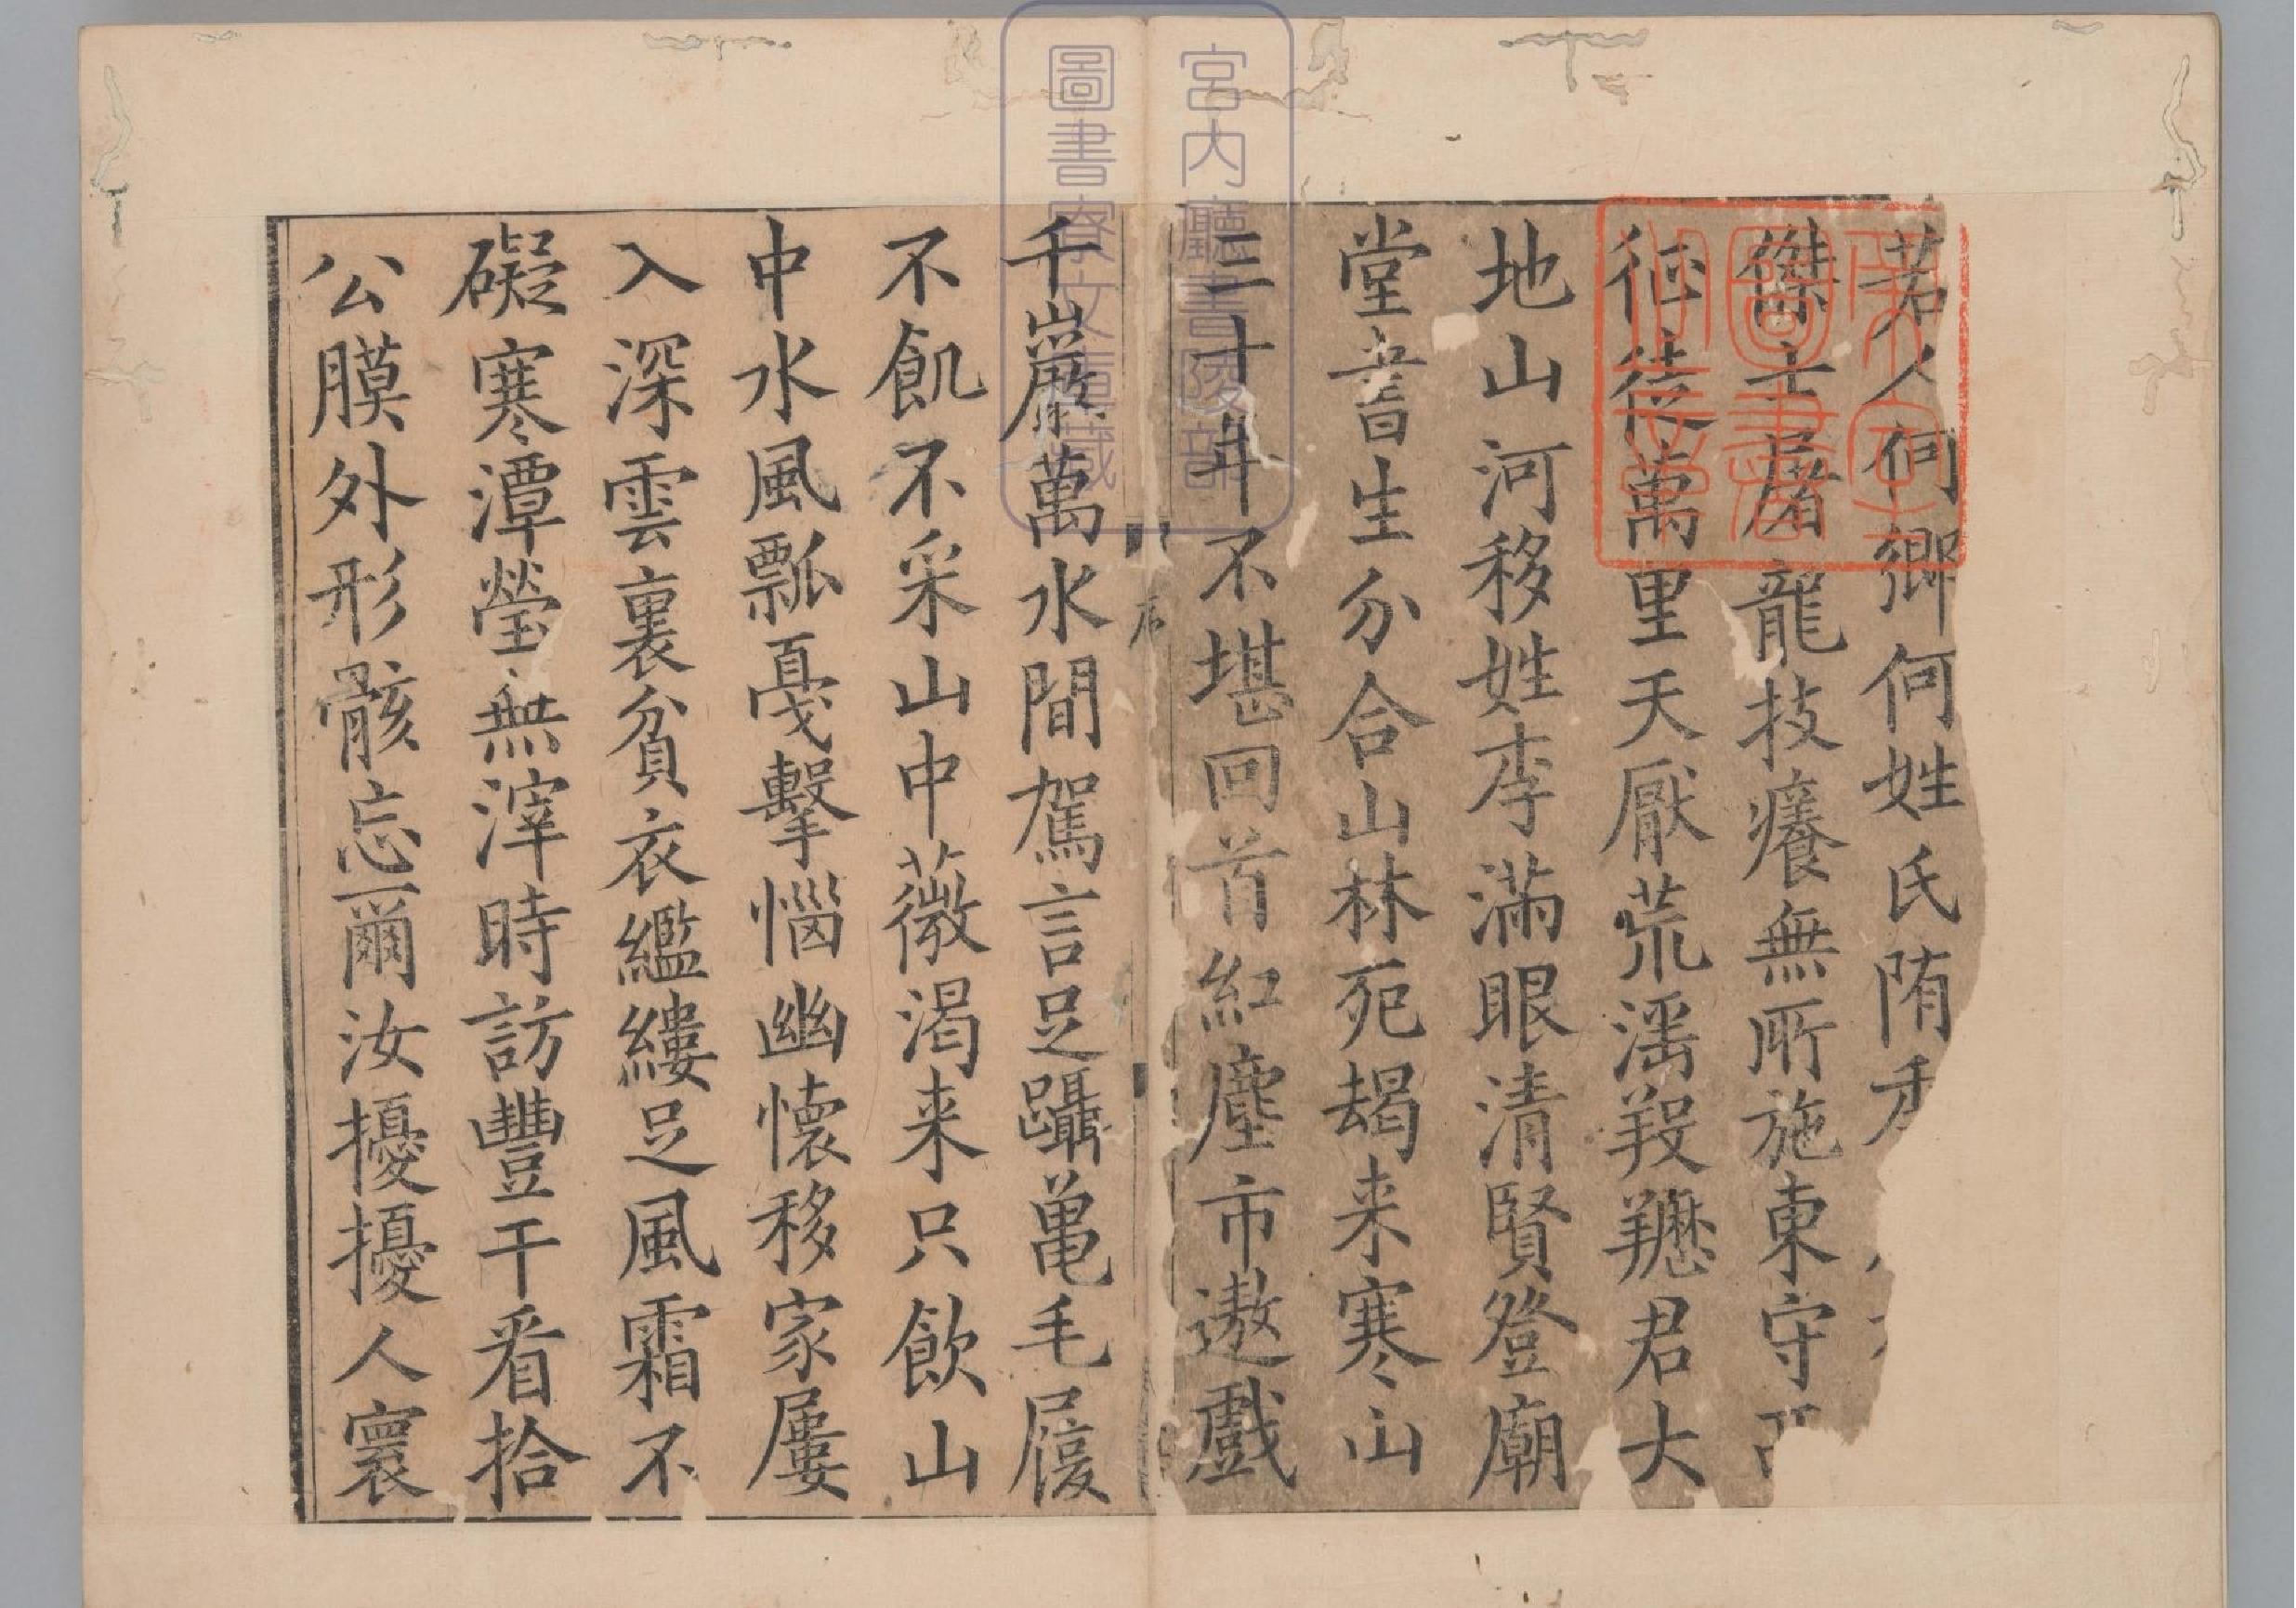 若人何鄉何姓氏隋
傑士屠龍技癢無所施東守
征徒萬里天厭荒淫羖䍽君大
地山河移姓李滿眼清賢登廟
堂書生分合山林死朅来寒山
三十年不堪回首紅塵市遨戲
千巖萬水間駕言足躡龜毛屐
不飢不采山中薇渴来只飲山
中水風瓢戛擊惱幽懷移家屢
入深雲裏貧衣繿縷足風霜不
礙寒潭瑩無滓時訪豐干看拾
公膜外形骸忘爾汝擾擾人寰
序
宮内廳書陵部
圖書寮文庫藏